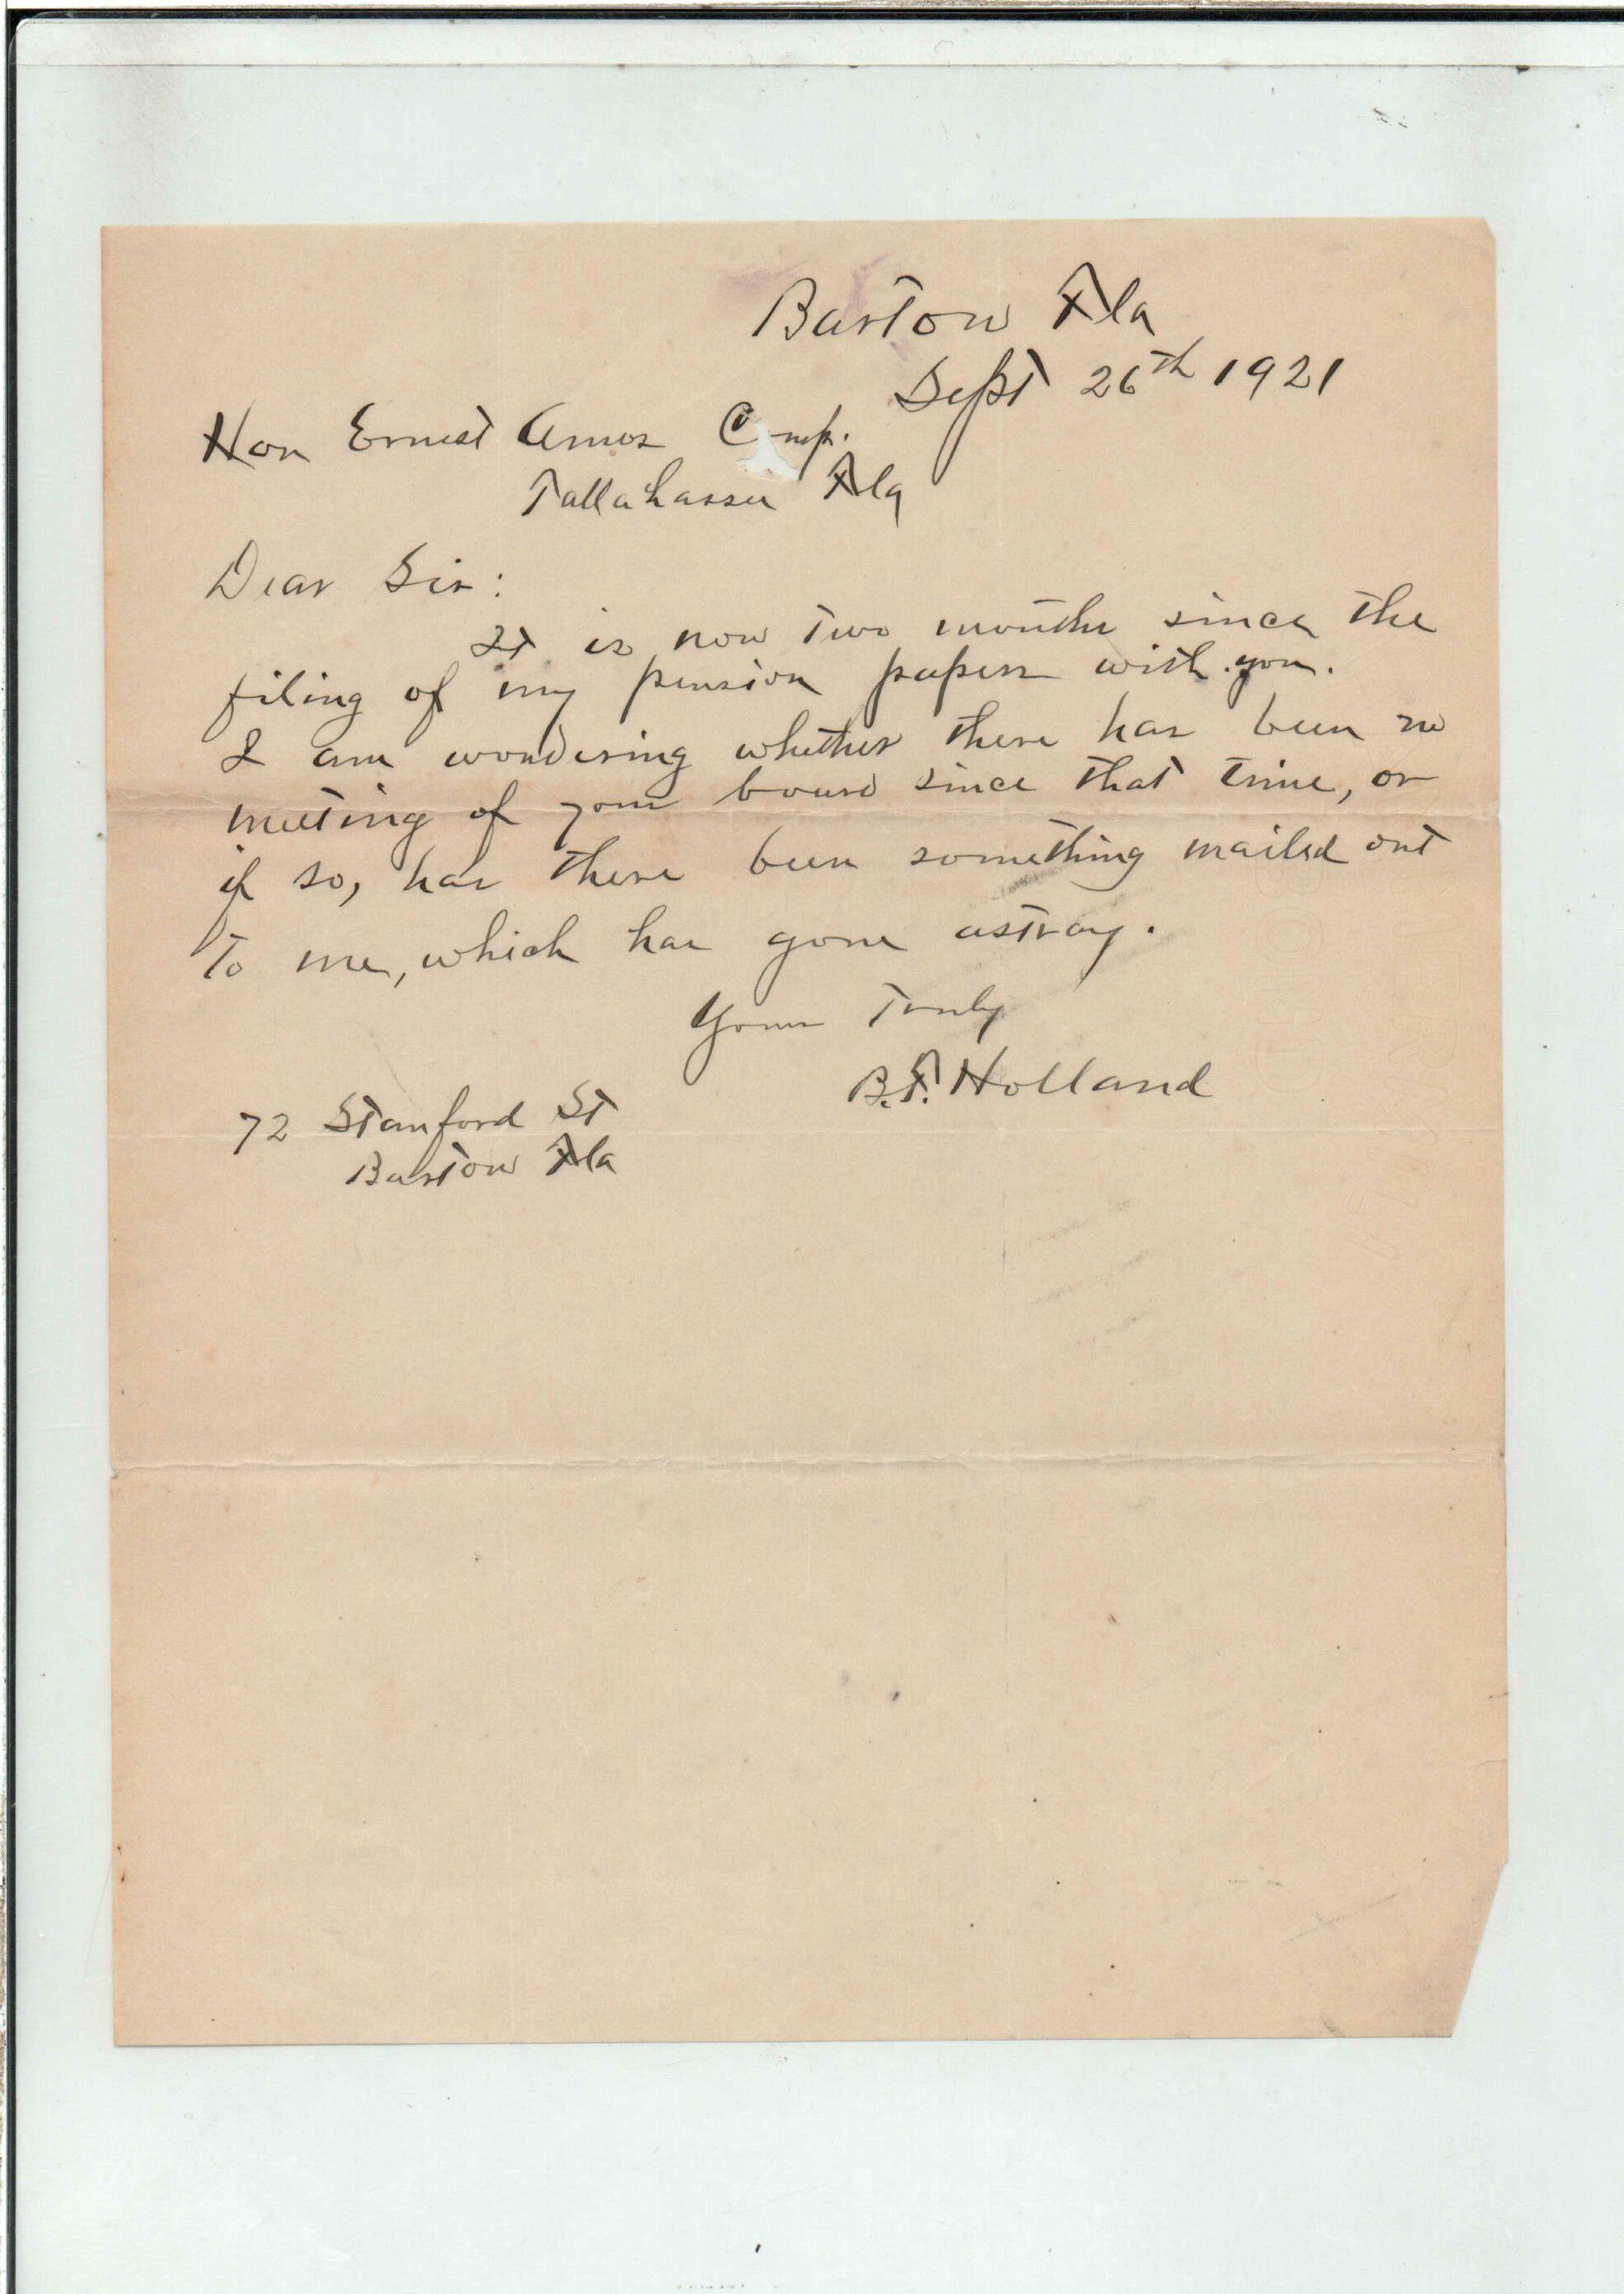 Bartow Fla
Sept 26th 1921
Hon Ernest Amos Comp.
Tallahassee Fla
Dear Sir:
It is now two months since the
filing of my pension papers with you.
I am wondering whether there has been no
meeting of your board since that time, or
if so, has there been something mailed out
to me, which has gone astray.
Yours Truly
B.F. Holland
72 Stanford St
Bartow Fla